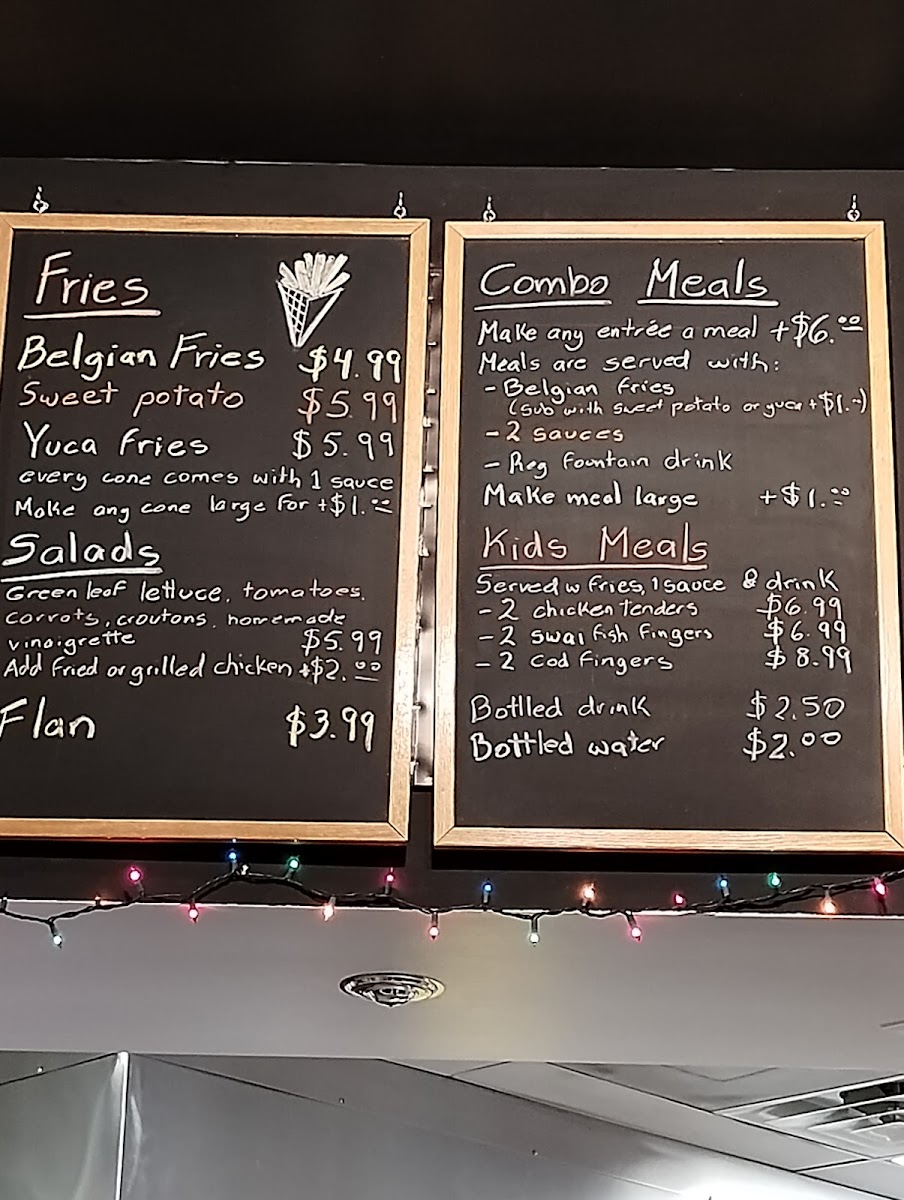 Fries
Belgian Fries $4.99
Sweet potato $5.99
Yuca fries $5.99
every cone comes with 1 sauce
Make any cone large for +$1.00
Salads
Green leaf lettuce, tomatoes,
carrots, croutons, homemade
vinaigrette $5.99
Add fried or grilled chicken +$2.00
Flan $3.99
Combo Meals
Make any entrée a meal +$6.00
Meals are served with:
- Belgian fries
(sub with sweet potato or yuca +$1.-)
- 2 sauces
- Reg fountain drink
Make meal large +$1.00
Kids Meals
Served w fries, 1 sauce & drink
- 2 chicken tenders $6.99
- 2 swai fish fingers $6.99
- 2 cod fingers $8.99
Botlled drink $2.50
Bottled water $2.00